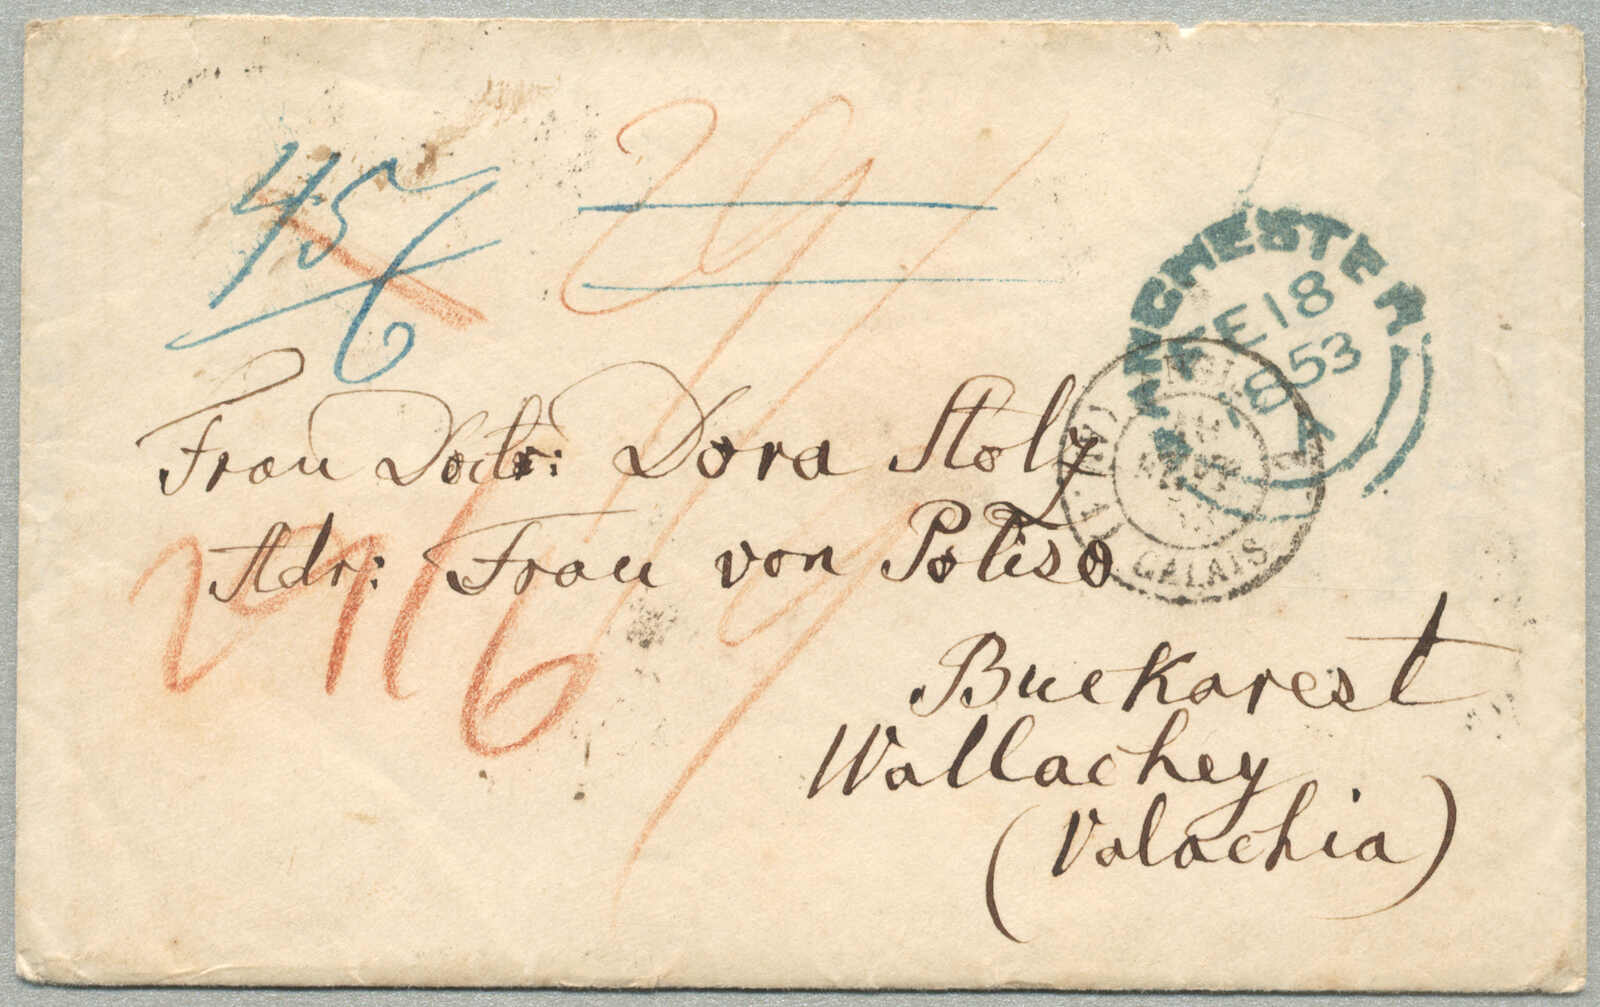 45
6
MANCHESTER
FE 18
1853
A
CALAIS
Frau Doctr: Dora Stolz
Adr: Frau von Poliso
Bukarest
Wallachey
(Valachia)